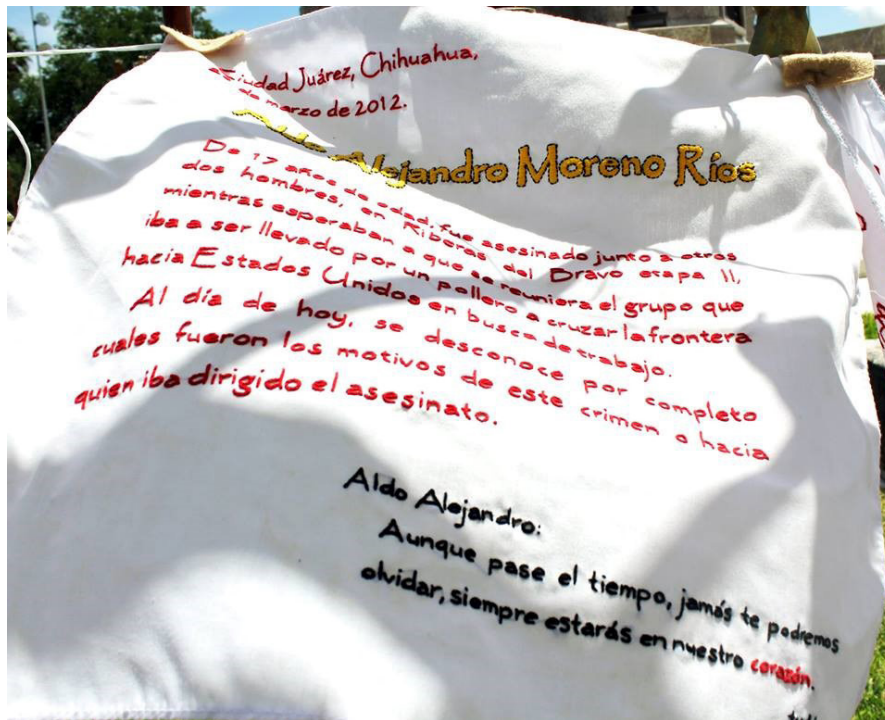 Ciudad Juárez, Chihuahua,
de marzo de 2012.
Aldo Alejandro Moreno Ríos
De 17 años de edad, fue asesinado junto a otros
dos hombres, en Riberas del Bravo etapa II,
mientras esperaban a que se reuniera el grupo que
iba a ser llevado por un pollero a cruzar la frontera
hacia Estados Unidos en busca de trabajo.
Al día de hoy, se desconoce por completo
cuales fueron los motivos de este crimen o hacia
quien iba dirigido el asesinato.
Aldo Alejandro:
Aunque pase el tiempo, jamás te podremos
olvidar, siempre estarás en nuestro corazón.